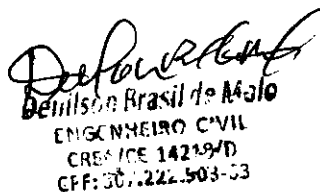 Denilson Brasil de Melo
ENGENHEIRO CIVIL
CREA/CE 14219/D
CPF: 307.222.503-53